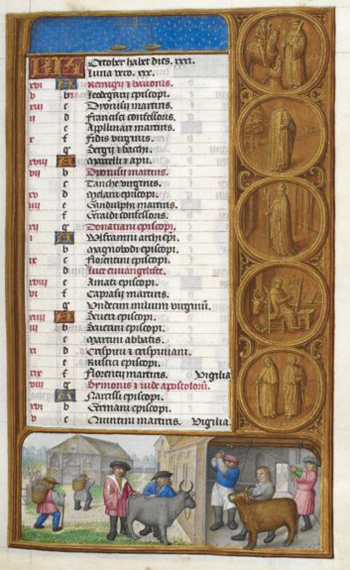 October habet dies. xxxi.
Luna vero. xxx.
xvi A Remigii & bavonis.
v b Leodegarii episcopi.
xiii c Dyonisii martiris.
ii d Francisci confessoris.
e martiris.
x f Fidis virginis.
g Sergii & bachi.
xviii A Marcelli & apu.
vii b Dyonisii martiris.
c Tanche virginis.
xv d Melani episcopi.
iiii e Gindulphi martiris.
f Giraldi confessoris.
xii g Donatiani episcopi.
i A Wlframni archiepi.
b Magnobodi episcopi.
ix c Florentini episcopi.
d Luce euangeliste.
xvii e Amati episcopi.
vi f Caprasii martiris.
g Undecim milium virginū.
xiiii A Severi episcopi.
iii b Severini episcopi.
c Martini abbatis.
xi d Crispini & crispiniani.
e Rustici episcopi.
xix f Florentii martiris. Vigilia
viii g Symonis & iude apostolorū.
A Narcissi episcopi.
xvi b Germani episcopi.
v c Quintini martiris. Vigilia.